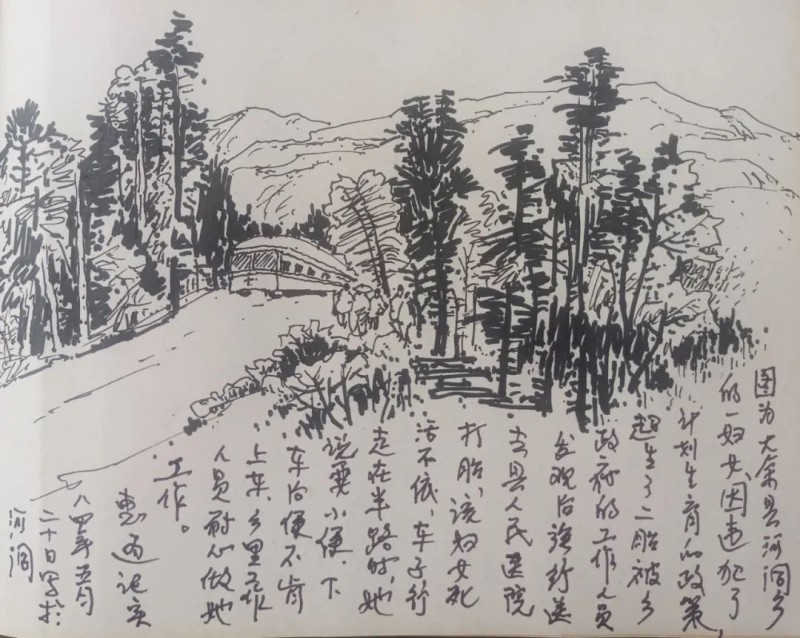 图为大余县河洞乡
的一妇女因违犯了
计划生育的政策
超生了二胎被乡
政府的工作人员
发现后强行送
去县人民医院
打胎,该妇女死
活不依,车子行
走在半路时,她
说要小便,下
车后便不肯
上车,乡里工作
人员耐心做她
工作。
记实
八四年五月
二十日写於
河洞